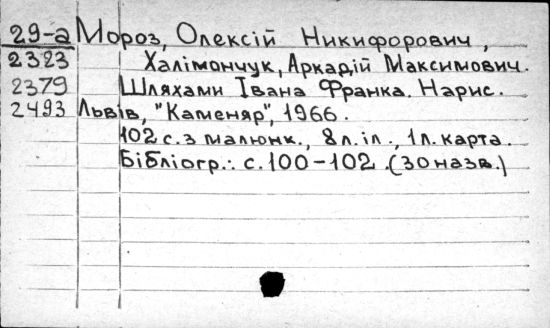 29-а Мороз, Олексій Никифорович,
2323 Халімончук, Аркадій Максимович.
2379 Шляхами Івана Франка. Нарис.
2493 Львів, "Каменяр", 1966.
102 с. з малюнк., 8 л. іл., 1 л. карта.
Бібліогр.: с. 100-102. (30 назв.)